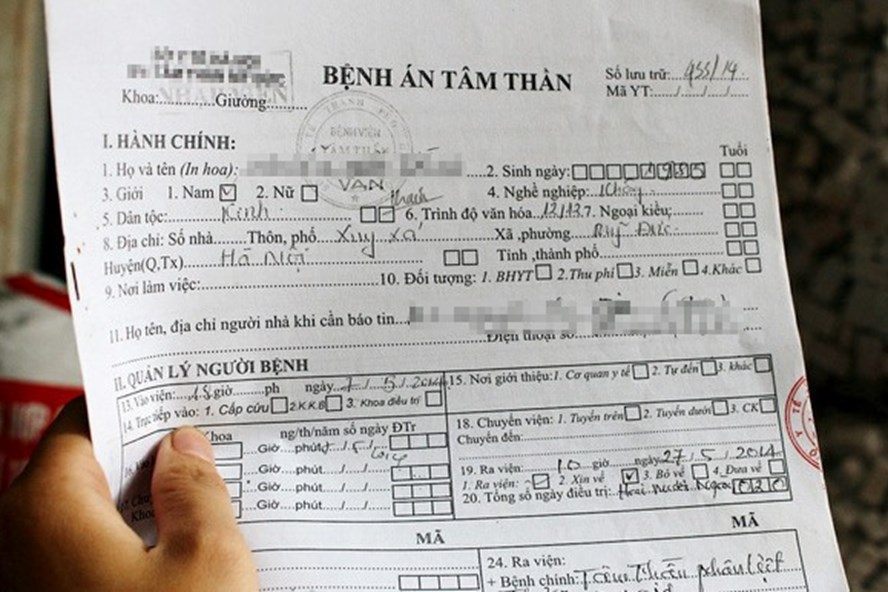 BỆNH ÁN TÂM THẦN
Số lưu trữ: 955/14
Mã YT:..../..../..../....
Khoa:..........Giường..........
BỆNH VIỆN
TÂM THẦN
I. HÀNH CHÍNH:
Tuổi
1. Họ và tên (In hoa): VẠN 2. Sinh ngày:
3. Giới 1. Nam 2. Nữ 4. Nghề nghiệp: không
5. Dân tộc: Kinh 6. Trình độ văn hóa: 12/12 7. Ngoại kiều:
8. Địa chỉ: Số nhà......... Thôn, phố Xuy xá Xã ,phường
Huyện(Q,Tx) Hà Nội Tỉnh ,thành phố
9. Nơi làm việc: 10. Đối tượng: 1. BHYT 2.Thu phí 3. Miễn 4.Khác
11. Họ tên, địa chỉ người nhà khi cần báo tin
Điện thoại số
II. QUẢN LÝ NGƯỜI BỆNH
13. Vào viện: giờ ph ngày 7/5/2014 15. Nơi giới thiệu: 1. Cơ quan y tế 2. Tự đến 3. khác
14. Trực tiếp vào: 1. Cấp cứu 2.K.K.B 3. Khoa điều trị
Khoa ng/th/năm số ngày ĐTr
18. Chuyển viện: 1. Tuyến trên 2. Tuyến dưới 3. CK
Giờ....phút
Chuyển đến:
Giờ....phút
19. Ra viện: 10 giờ ngày 27/5/2014
Giờ....phút
1. Ra viện: 2. Xin về 3. Bỏ về 4. Đưa về
Giờ....phút
20. Tổng số ngày điều trị: Hai mươi ngày 020
Khoa
MÃ
MÃ
24. Ra viện:
+ Bệnh chính: Tâm thần phân liệt